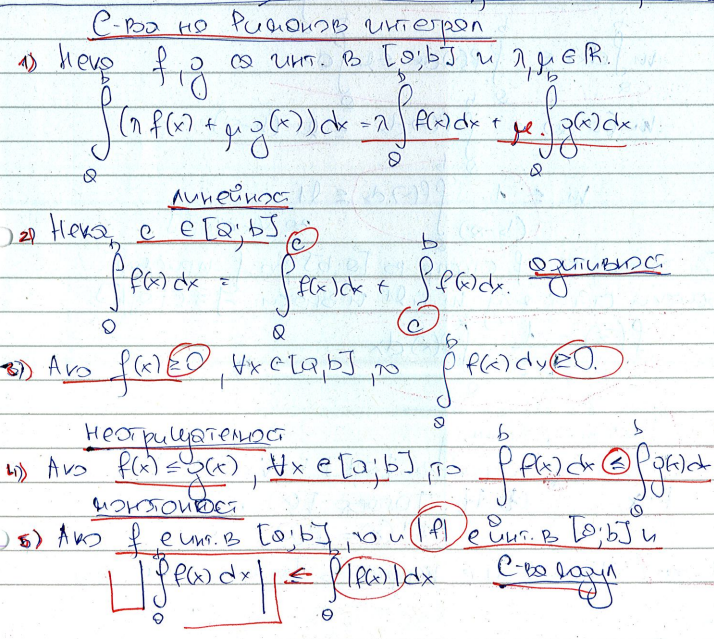 С-ва на Риманов интеграл
1) Нека f, g са инт. в [a;b] и λ, μ ∈ ℝ.
∫_a^b (λ f(x) + μ g(x)) dx = λ ∫_a^b f(x) dx + μ. ∫_a^b g(x) dx
линейност
2) Нека c ∈ [a;b].
∫_a^b f(x) dx = ∫_a^c f(x) dx + ∫_c^b f(x) dx. адитивност
3) Ако f(x) ≥ 0, ∀x ∈ [a,b], то ∫_a^b f(x) dx ≥ 0.
неотрицателност
4) Ако f(x) ≤ g(x), ∀x ∈ [a;b], то ∫_a^b f(x) dx ≤ ∫_a^b g(x) d
монотоност
5) Ако f е инт. в [a;b], то и |f| е инт. в [a;b] и
|∫_a^b f(x) dx| ≤ ∫_a^b |f(x)| dx С-во модул